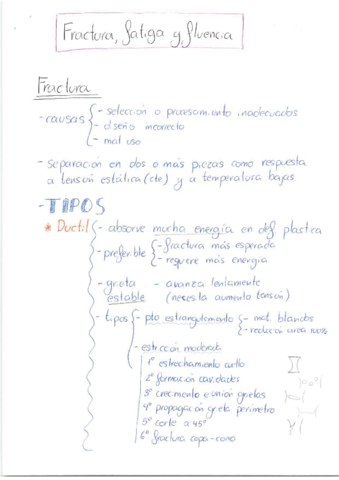 Fractura, fatiga y fluencia
Fractura
- causas { - selección o procesamiento inadecuados
- diseño incorrecto
- mal uso
- separación en dos o más piezas como respuesta
a tensión estática (cte) y a temperatura bajas.
- TIPOS
* Ductil { - absorve mucha energía en def plastica
- preferible { - fractura más esperada
- requiere más energía
- grieta estable - avanza lentamente
(necesita aumento tensión)
- tipos { - pto estrangulamiento { - mat blandos
- reducción area 100%
- estricción moderada
1º estrechamiento cuello
2º formación cavidades
3º crecimiento e unión grietas
4º propagación grieta perímetro
5º corte a 45º
6º fractura copa-cono